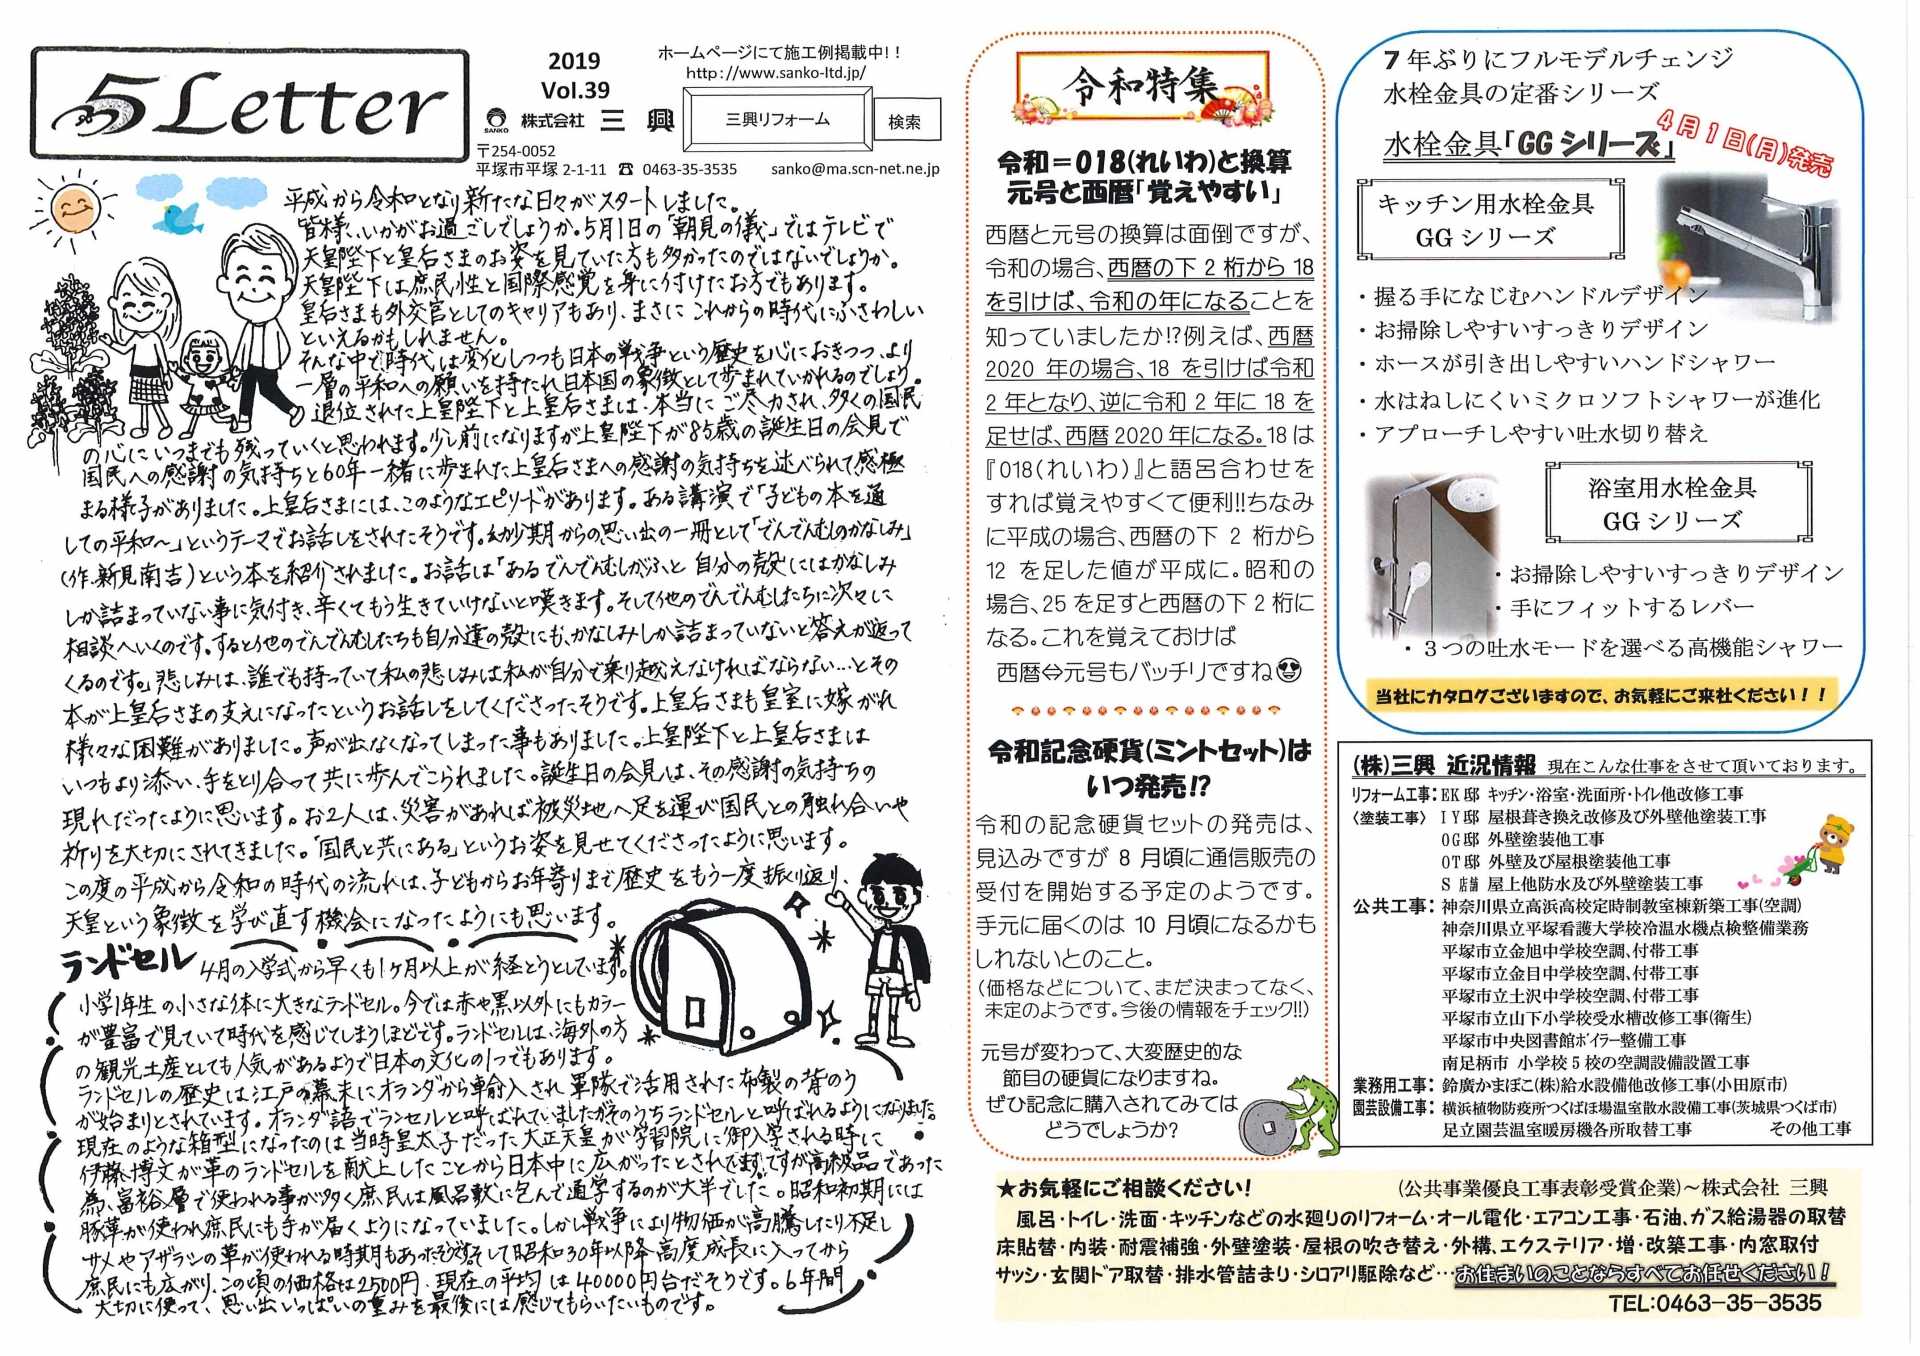 5 Letter
2019
Vol.39
ホームページにて施工例掲載中!!
http://www.sanko-ltd.jp/
SANKO 株式会社 三 興
三興リフォーム
検索
〒254-0052
平塚市平塚 2-1-11 ☎ 0463-35-3535 sanko@ma.scn-net.ne.jp
平成から令和となり新たな日々がスタートしました。
皆様、いかがお過ごしでしょうか。5月1日の「朝見の儀」ではテレビで
天皇陛下と皇后さまのお姿を見ていた方も多かったのではないでしょうか。
天皇陛下は庶民性と国際感覚を身に付けたお方でもあります。
皇后さまも外交官としてのキャリアもあり、まさに これからの時代にふさわしい
といえるかもしれません。
そんな中で時代は変化しつつも日本の戦争という歴史を心におきつつ、より
一層の平和への願いを持たれ日本国の象徴として歩まれていかれるのでしょう。
退位された上皇陛下と上皇后さまは、本当に ご尽力され、多くの国民
の心に いつまでも残っていくと思われます。少し前になりますが上皇陛下が85歳の誕生日の会見で
国民への感謝の気持ちと60年一緒に歩まれた上皇后さまへの感謝の気持ちを述べられて感極
まる様子がありました。上皇后さまには、このようなエピソードがあります。ある講演で「子どもの本を通
しての平和〜」というテーマでお話しをされたそうです。幼少期からの思い出の一冊として「でんでんむしのかなしみ」
(作.新見南吉)という本を紹介されました。お話は「あるでんでんむしがふと 自分の殻にはかなしみ
しか詰まっていない事に気付き、辛くてもう生きていけないと嘆きます。そして他のでんでんむしたちに次々に
相談へいくのです。すると他のでんでんむしたちも自分達の殻にも、かなしみしか詰まっていないと答えが返って
くるのです。」悲しみは、誰でも持っていて私の悲しみは私が自分で乗り越えなければならない…とその
本が上皇后さまの支えになったというお話しをしてくださったそうです。上皇后さまも皇室に嫁がれ
様々な困難がありました。声が出なくなってしまった事もありました。上皇陛下と上皇后さまは
いつもより添い、手をとり合って共に歩んでこられました。誕生日の会見は、その感謝の気持ちの
現れだったように思います。お2人は、災害があれば被災地へ足を運び国民との触れ合いや
祈りを大切にされてきました。「国民と共にある」というお姿を見せてくださったように思います。
この度の平成から令和の時代の流れは、子どもからお年寄りまで歴史をもう一度振り返り、
天皇という象徴を学び直す機会になったようにも思います。
ランドセル 4月の入学式から早くも1ヶ月以上が経とうとしています。
小学1年生の小さな体に大きなランドセル。今では赤や黒以外にもカラー
が豊富で見ていて時代を感じてしまうほどです。ランドセルは、海外の方
の観光土産としても人気があるようで日本の文化の1つでもあります。
ランドセルの歴史は江戸の幕末にオランダから輸入され 軍隊で活用された布製の背のう
が始まりとされています。オランダ語でランセルと呼ばれていましたがそのうちランドセルと呼ばれるようになりました。
現在のような箱型になったのは当時皇太子だった大正天皇が学習院に御入学される時に
伊藤博文が革のランドセルを献上したことから日本中に広がったとされてます。ですが高級品であった
為、富裕層で使われる事が多く庶民は風呂敷に包んで通学するのが大半でした。昭和初期には
豚革が使われ庶民にも手が届くようになっていました。しかし戦争により物価が高騰したり不足し
サメやアザラシの革が使われる時期もあったそうです。そして昭和30年以降 高度成長に入ってから
庶民にも広がり、この頃の価格は2500円、現在の平均は40000円台だそうです。6年間
大切に使って、思い出いっぱいの重みを最後には感じてもらいたいものです。
令和特集
令和=018(れいわ)と換算
元号と西暦「覚えやすい」
西暦と元号の換算は面倒ですが、
令和の場合、西暦の下2桁から18
を引けば、令和の年になることを
知っていましたか!?例えば、西暦
2020年の場合、18を引けば令和
2年となり、逆に令和2年に18を
足せば、西暦2020年になる。18は
『018(れいわ)』と語呂合わせを
すれば覚えやすくて便利!!ちなみ
に平成の場合、西暦の下2桁から
12を足した値が平成に。昭和の
場合、25を足すと西暦の下2桁に
なる。これを覚えておけば
西暦⇔元号もバッチリですね😍
令和記念硬貨(ミントセット)は
いつ発売!?
令和の記念硬貨セットの発売は、
見込みですが8月頃に通信販売の
受付を開始する予定のようです。
手元に届くのは10月頃になるかも
しれないとのこと。
(価格などについて、まだ決まってなく、
未定のようです。今後の情報をチェック!!)
元号が変わって、大変歴史的な
節目の硬貨になりますね。
ぜひ記念に購入されてみては
どうでしょうか?
7年ぶりにフルモデルチェンジ
水栓金具の定番シリーズ
水栓金具「GGシリーズ」
4月1日(月)発売
キッチン用水栓金具
GGシリーズ
・握る手になじむハンドルデザイン
・お掃除しやすいすっきりデザイン
・ホースが引き出しやすいハンドシャワー
・水はねしにくいミクロソフトシャワーが進化
・アプローチしやすい吐水切り替え
浴室用水栓金具
GGシリーズ
・お掃除しやすいすっきりデザイン
・手にフィットするレバー
・3つの吐水モードを選べる高機能シャワー
当社にカタログございますので、お気軽にご来社ください!!
(株)三興 近況情報 現在こんな仕事をさせて頂いております。
リフォーム工事:EK邸 キッチン・浴室・洗面所・トイレ他改修工事
〈塗装工事〉 IY邸 屋根葺き換え改修及び外壁他塗装工事
OG邸 外壁塗装他工事
OT邸 外壁及び屋根塗装他工事
S店舗 屋上他防水及び外壁塗装工事
公共工事: 神奈川県立高浜高校定時制教室棟新築工事(空調)
神奈川県立平塚看護大学校冷温水機点検整備業務
平塚市立金旭中学校空調、付帯工事
平塚市立金目中学校空調、付帯工事
平塚市立土沢中学校空調、付帯工事
平塚市立山下小学校受水槽改修工事(衛生)
平塚市中央図書館ボイラー整備工事
南足柄市 小学校5校の空調設備設置工事
業務用工事: 鈴廣かまぼこ(株)給水設備他改修工事(小田原市)
園芸設備工事: 横浜植物防疫所つくばほ場温室散水設備工事(茨城県つくば市)
足立園芸温室暖房機各所取替工事 その他工事
★お気軽にご相談ください! (公共事業優良工事表彰受賞企業)~株式会社 三興
風呂・トイレ・洗面・キッチンなどの水廻りのリフォーム・オール電化・エアコン工事・石油、ガス給湯器の取替
床貼替・内装・耐震補強・外壁塗装・屋根の吹き替え・外構、エクステリア・増・改築工事・内窓取付
サッシ・玄関ドア取替・排水管詰まり・シロアリ駆除など…お住まいのことならすべてお任せください!
TEL:0463-35-3535